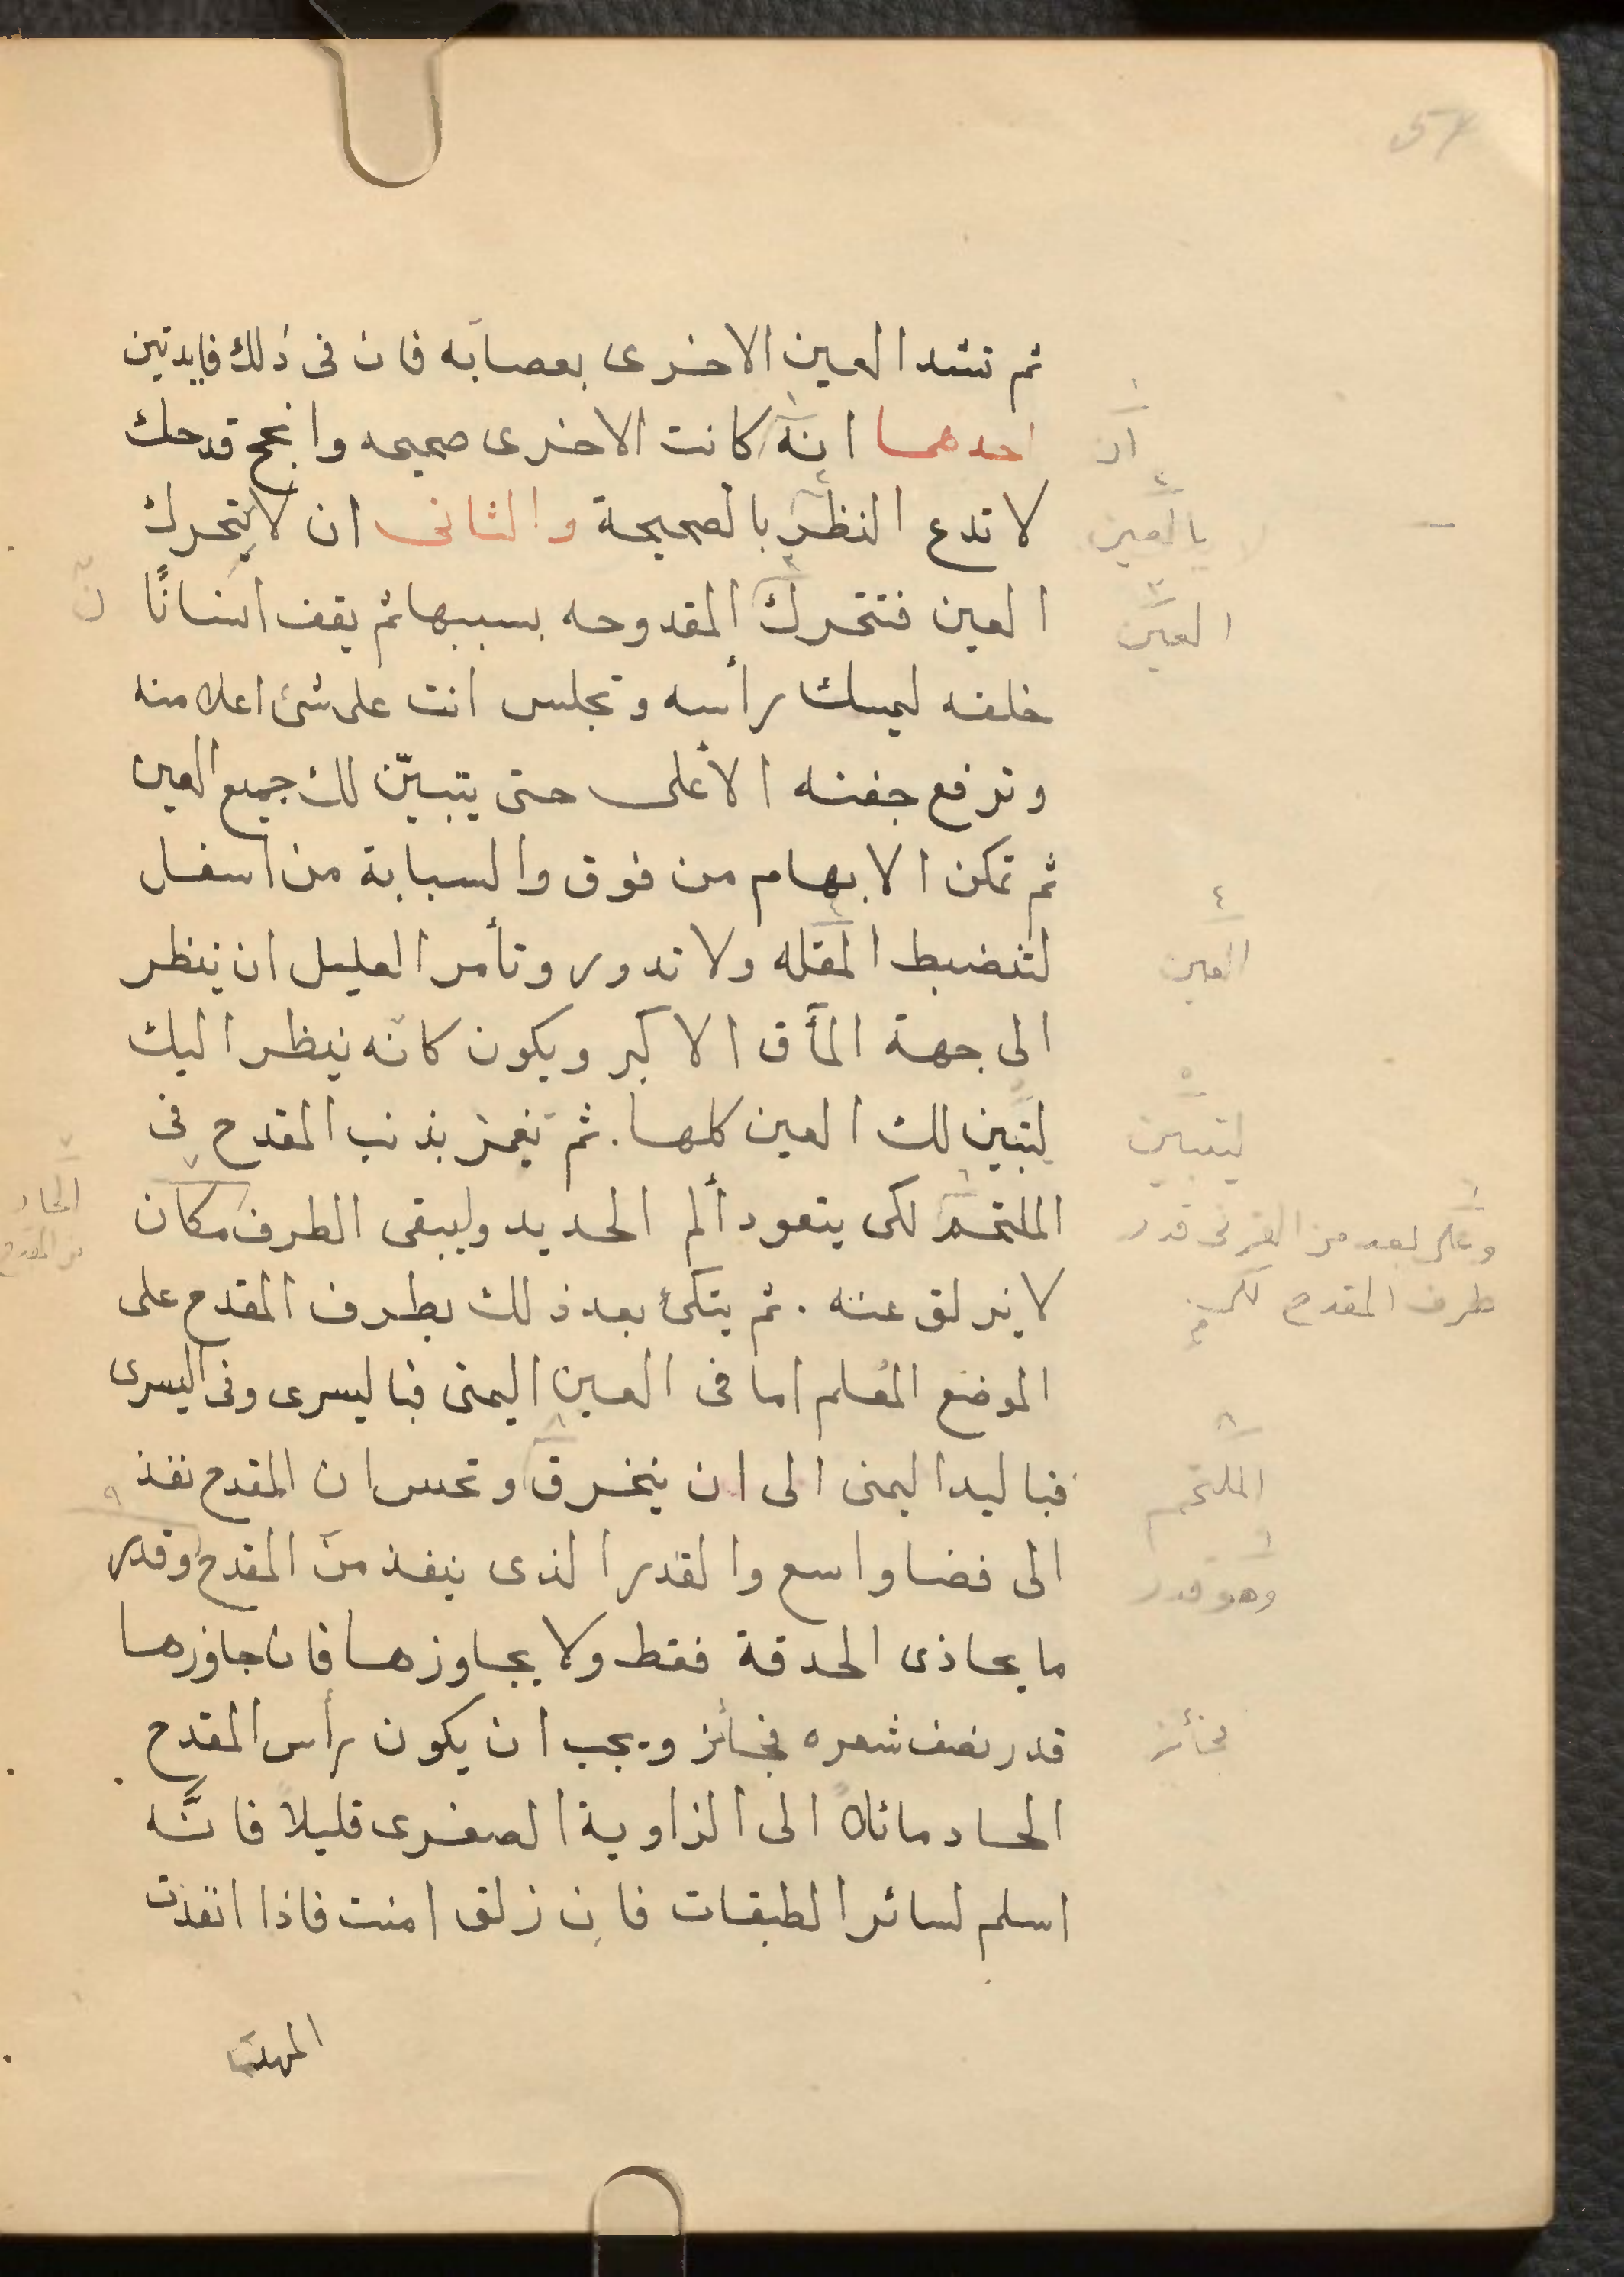 ثم تشد العين الاخرى بعصابه فان فى ذلك فايدتين
احدهما انه كانت الاخرى صحيحه وانجح قدحك
لا تدع النظر بالصحيحة والثانى ان لا يتحرك
العين فتتحرك المقدوحه بسببها ثم يقف انسانًا
خلفه ليمسك رأسه وتجلس انت على شئ اعلا منه
وترفع جفنه الأعلى حتى يتبيّن لك جميع العين
ثم تمكن الابهام من فوق والسبابة من اسفل
لتنضبط المقله ولا تدور وتأمر العليل ان ينظر
الى جهة المآق الاكبر ويكون كانه ينظر اليك
لتبين لك العين كلها. ثم تغمز بذنب المقدح فى
الملتحم لكى يتعود ألم الحديد وليبقى الطرف مكان
لا يزلق عنه . ثم يتكئ بعد ذلك بطرف المقدح على
الموضع المُعلم اما فى العين اليمنى فباليسرى وفى اليسرى
فباليد اليمنى الى ان ينخرق وتحس ان المقدح نفذ
الى فضا واسع والقدر الذى ينفذ من المقدح وقدر
ما يحاذى الحدقة فقط ولا يجاوزها فان جاوزها
قدر نصف شعره فجائز ويجب ان يكون رأس المقدح
الحاد مائلاً الى الزاوية الصغرى قليلاً فانّه
اسلم لسائر الطبقات فان زلق امنت فاذا انفذت
المهت
١
ان
٢
بالعين
٣
العين
٤
العين
٥
ليتبين
٦
وعلى بعد من القرنى قدر
طرف المقدح لكى
٧
الحاد
من المقدح
٨
الملتحم
٩
وهو قدر
فجائز